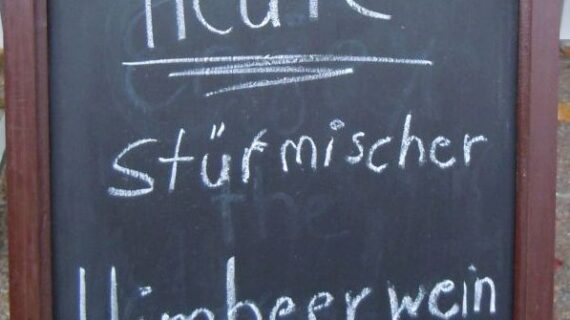 Heute
Stürmischer
Himbeerwein